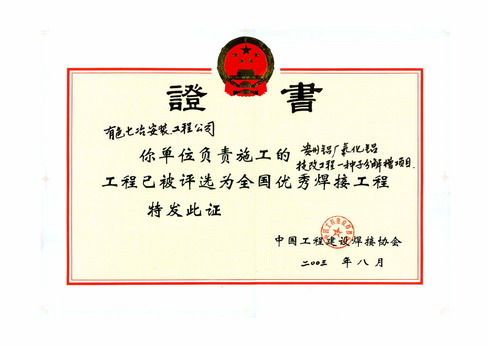 證書
有色七冶安装工程公司
你单位负责施工的 贵州铝厂氧化铝
技改工程一种子分解槽项目
工程已被评选为全国优秀焊接工程
特发此证
中国工程建设焊接协会
二00三 年 八 月